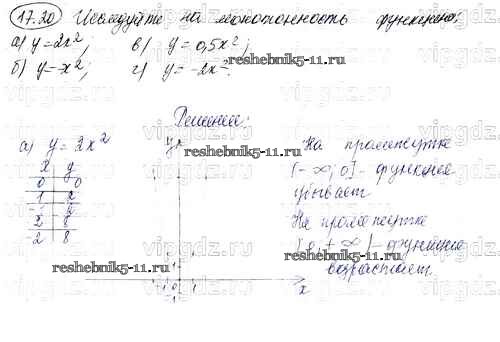 17.20 Исследуйте на монотонность функцию:
а) y=2x²; в) y=0,5x²;
б) y=-x²; г) y=-2x².
reshebnik5-11.ru
Решение:
а) y=2x²
x y
0 0
1 2
-1 2
2 8
-2 8
y
reshebnik5-11.ru
x
1
0 1
-1
На промежутке
(-∞; 0] - функция
убывает
На промежутке
[0; +∞) - функция
возрастает.
reshebnik5-11.ru
reshebnik5-11.ru
vipgdz.ru